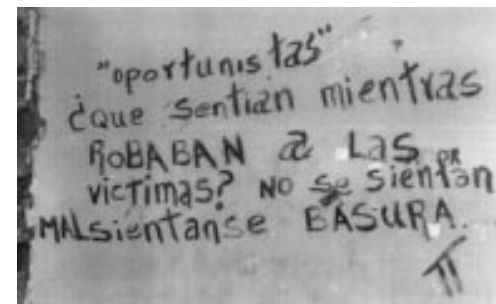 "oportunistas"
¿que sentian mientras
ROBABAN a Las
victimas? NO se sientan
MAL sientanse BASURA.